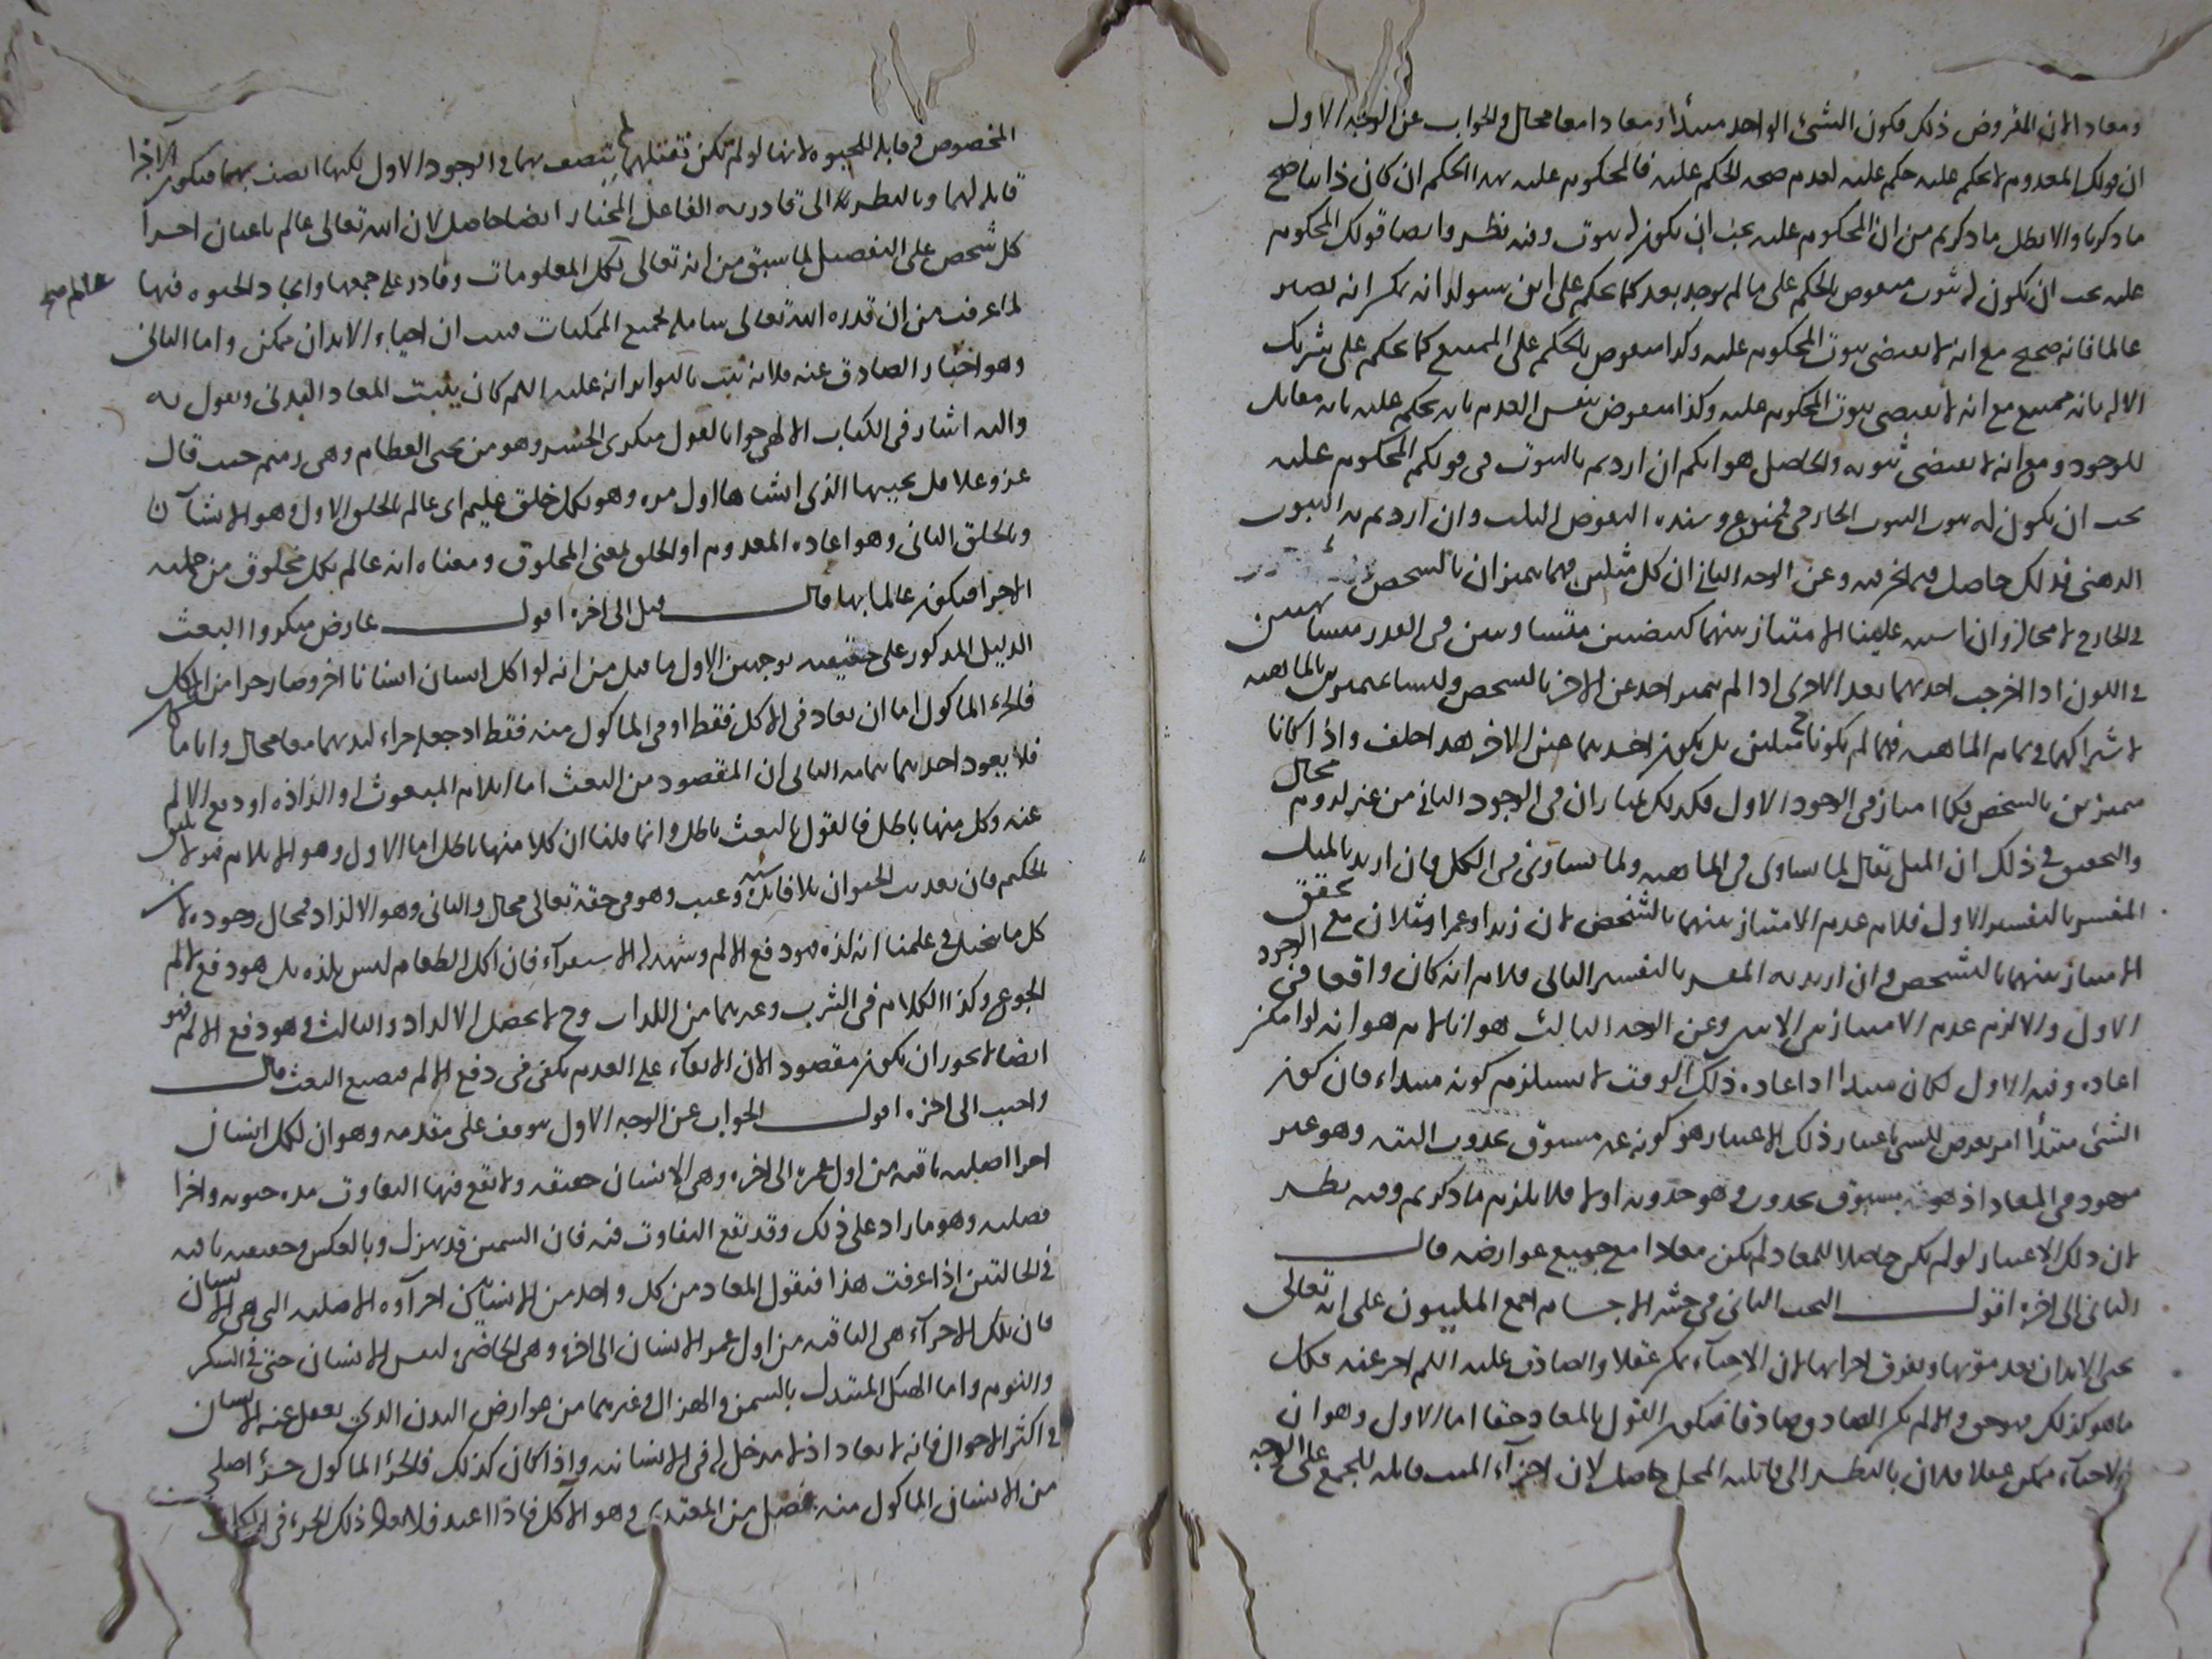 ومعادا لان المفروض ذلك فكون الشئ الواحد مبتدأ ومعادا معا محال والجواب عن الوجه الاول
ان قولك المعدوم لا يحكم عليه حكم عليه لعدم صحة الحكم عليه فالمحكوم عليه بهذا الحكم ان كان ذاتيا صح
ما ذكرنا والا بطل ما ذكرتم من ان المحكوم عليه يجب ان يكون له ثبوت وفيه نظر وايضا قولك المحكوم
عليه يجب ان يكون له ثبوت منقوض بالحكم على ما لم يوجد بعد كما يحكم على ابن سيولد انه يمكن انه يصير
عالما فانه صحيح مع انه لا يقتضى ثبوت المحكوم عليه وكذا منقوض بالحكم على الممتنع كما يحكم على شريك
الاله بانه ممتنع مع انه لا يقتضى ثبوت المحكوم عليه وكذا منقوض بنفس العدم بانه يحكم عليه بانه مقابل
للوجود ومع انه لا يقتضى ثبوته والحاصل هو انكم ان اردتم بالثبوت فى قولكم المحكوم عليه
يجب ان يكون له ثبوت الثبوت الخارجى فممنوع وسنده النقوض الثلث وان اردتم به الثبوت
الذهنى فذلك حاصل فيما نحن فيه وعن الوجه الثانى ان كل مثلين فهما متميزان بالشخص
فى الخارج لا محالة وان اشتبه علينا الامتياز بينهما كبيضتين متساويتين فى القدر متشابهتين
فى اللون اذا اخرجت احديهما بعد الاخرى اذ لو لم يتميز احد عن الاخر بالشخص وليسا متميزين بالماهية
لاشتراكهما فى تمام الماهية فهما لم يكونا ح مثلين بل يكون احديهما عين الاخر هذا خلف واذا كانا
متميزين بالشخص فكما امتاز فى الوجود الاول فكذلك يمتازان فى الوجود الثانى من غير لزوم محال
والتحقيق فى ذلك ان المثل يقال لما يساوى فى الماهية ولما يساوى فى الكل فان اريد بالمثل
المفسر بالتفسير الاول فلا نم عدم الامتياز بينهما بالشخص لان زيدا وعمرا مثلان مع تحقق
الامتياز بينهما بالشخص وان اريد به المفسر بالتفسير الثانى فلا نم انه كان واقعا فى الوجود
الاول والا لزم عدم الامتياز بين الاثنين وعن الوجه الثالث هو انا لا نم هو انه لو امكن
اعادة وقته الاول لكان مبتدا اذ اعاده ذلك الوقت لا يستلزم كونه مبتداء فان كون
الشئ مبتدأ امر يعرض للشئ باعتبار ذلك الاعتبار هو كونه غير مسبوق بحدوث البتة وهو غير
موجود فى المعاد اذ هو مسبوق بحدوث وهو حدوثه اولا فلا يلزم ما ذكرتم وفيه نظر
لان ذلك الاعتبار لو لم يكن حاصلا للمعاد لم يكن معادا مع جميع عوارضه قال
الثانى الى اخره اقول البحث الثانى فى حشر الاجسام اجمع المليون على انه تعالى
يحيى الابدان بعد موتها وتفرق اجزائها لان الاحياء ممكن عقلا والصادق عليه السلم اخبر عنه فكل
ما هو كذلك فهو حق والا لم يكن الصادق صادقا فيكون القول بالمعاد حقا اما الاول وهو ان
الاحياء ممكن عقلا فلان بالنظر الى قابلية المحل حاصل لان اجزاء الميت قابلة للجمع على الوجه
المخصوص وقابلة للحيوة لانها لو لم تكن تقبلهما لم تتصف بهما فى الوجود الاول لكنها اتصفت بهما فيكون الاجزا
قابلة لهما وبالنظر الى قادرية الفاعل المختار ايضا حاصل لان الله تعالى عالم باعيان اجزا
كل شخص على التفصيل لما سبق من انه تعالى عالم بكل المعلومات وقادر على جمعها وايجاد الحيوة فيها
عالم صح
لما عرفت من ان قدرة الله تعالى شاملة لجميع الممكنات فثبت ان احياء الابدان ممكن واما الثانى
وهو اخبار الصادق عنه فلانه ثبت بالتواتر انه عليه السلم كان يثبت المعاد البدنى ويقول به
واليه اشار فى الكتاب الالهى جوابا لقول منكرى الحشر وهو من يحيى العظام وهى رميم حيث قال
عز وعلا قل يحييها الذى انشاها اول مرة وهو بكل خلق عليم اى عالم بالخلق الاول وهو الانشآ
وبالخلق الثانى وهو اعادة المعدوم او الخلق بمعنى المخلوق ومعناه انه عالم بكل مخلوق من جملته
الاجزا فيكون عالما بها قال قيل الى اخره اقول عارض منكروا البعث
الدليل المذكور على حقيقته بوجهين الاول ما قيل من انه لو اكل انسان انسانا اخر وصار جزا من الاكل
فالجزء الماكول اما ان يعاد فى الاكل فقط او فى الماكول منه فقط اذ جعله جزاء لبدنهما معا محال وايا ما كان
فلا يعود احدهما بتمامه الثانى ان المقصود من البعث اما ايلام المبعوث او الذاذه او دفع الالم
عنه وكل منها باطل فالقول بالبعث باطل وانما قلنا ان كلا منها باطل اما الاول وهو الايلام فلا يليق
بالحكيم فان تعذيب الحيوان بلا فائدة سفه وعبث وهو فى حقه تعالى محال والثانى وهو الالذاذ فمحال وجوده لان
كل ما نتخيل فى علمنا انه لذة فهو دفع الالم وشهد له الاستقرآء فان اكل الطعام ليس بلذة بل هو دفع الم
الجوع وكذا الكلام فى الشرب وغيرهما من اللذات وح لا يحصل الالذاذ والثالث وهو دفع الالم فهو
ايضا لا يجوز ان يكون مقصودا لان الابقاء على العدم يكفى فى دفع الالم فيضيع البعث قال
واجيب الى اخره اقول الجواب عن الوجه الاول يتوقف على مقدمة وهو ان لكل انسان
اجزا اصلية باقية من اول عمره الى اخره وهى الانسان حقيقة ولا تقع فيها التفاوت مدة حيوته واجزا
فضلية وهو ما زاد على ذلك وقد تقع التفاوت فيه فان السمين قد يهزل وبالعكس وحقيقته باقية
فى الحالتين اذا عرفت هذا فنقول المعاد من كل واحد من الانسانين اجزآوه الاصلية التى هى الانسان
فان تلك الاجزآء هى الباقية من اول عمر الانسان الى اخره وهى الحاضر لنفس الانسان حتى فى السكر
والنوم واما الهيكل المتبدل بالسمن والهزال وغيرهما من عوارض البدن الذى يغفل عنه الانسان
فى اكثر الاحوال فانه لا يعاد اذ لا مدخل له فى الانسانية واذا كان كذلك فالجزء الماكول جزء اصلى
من الانسان الماكول منه فضل من المغتذى وهو الاكل فاذا اعيد فلا يعاد ذلك الجزء فى الاكل